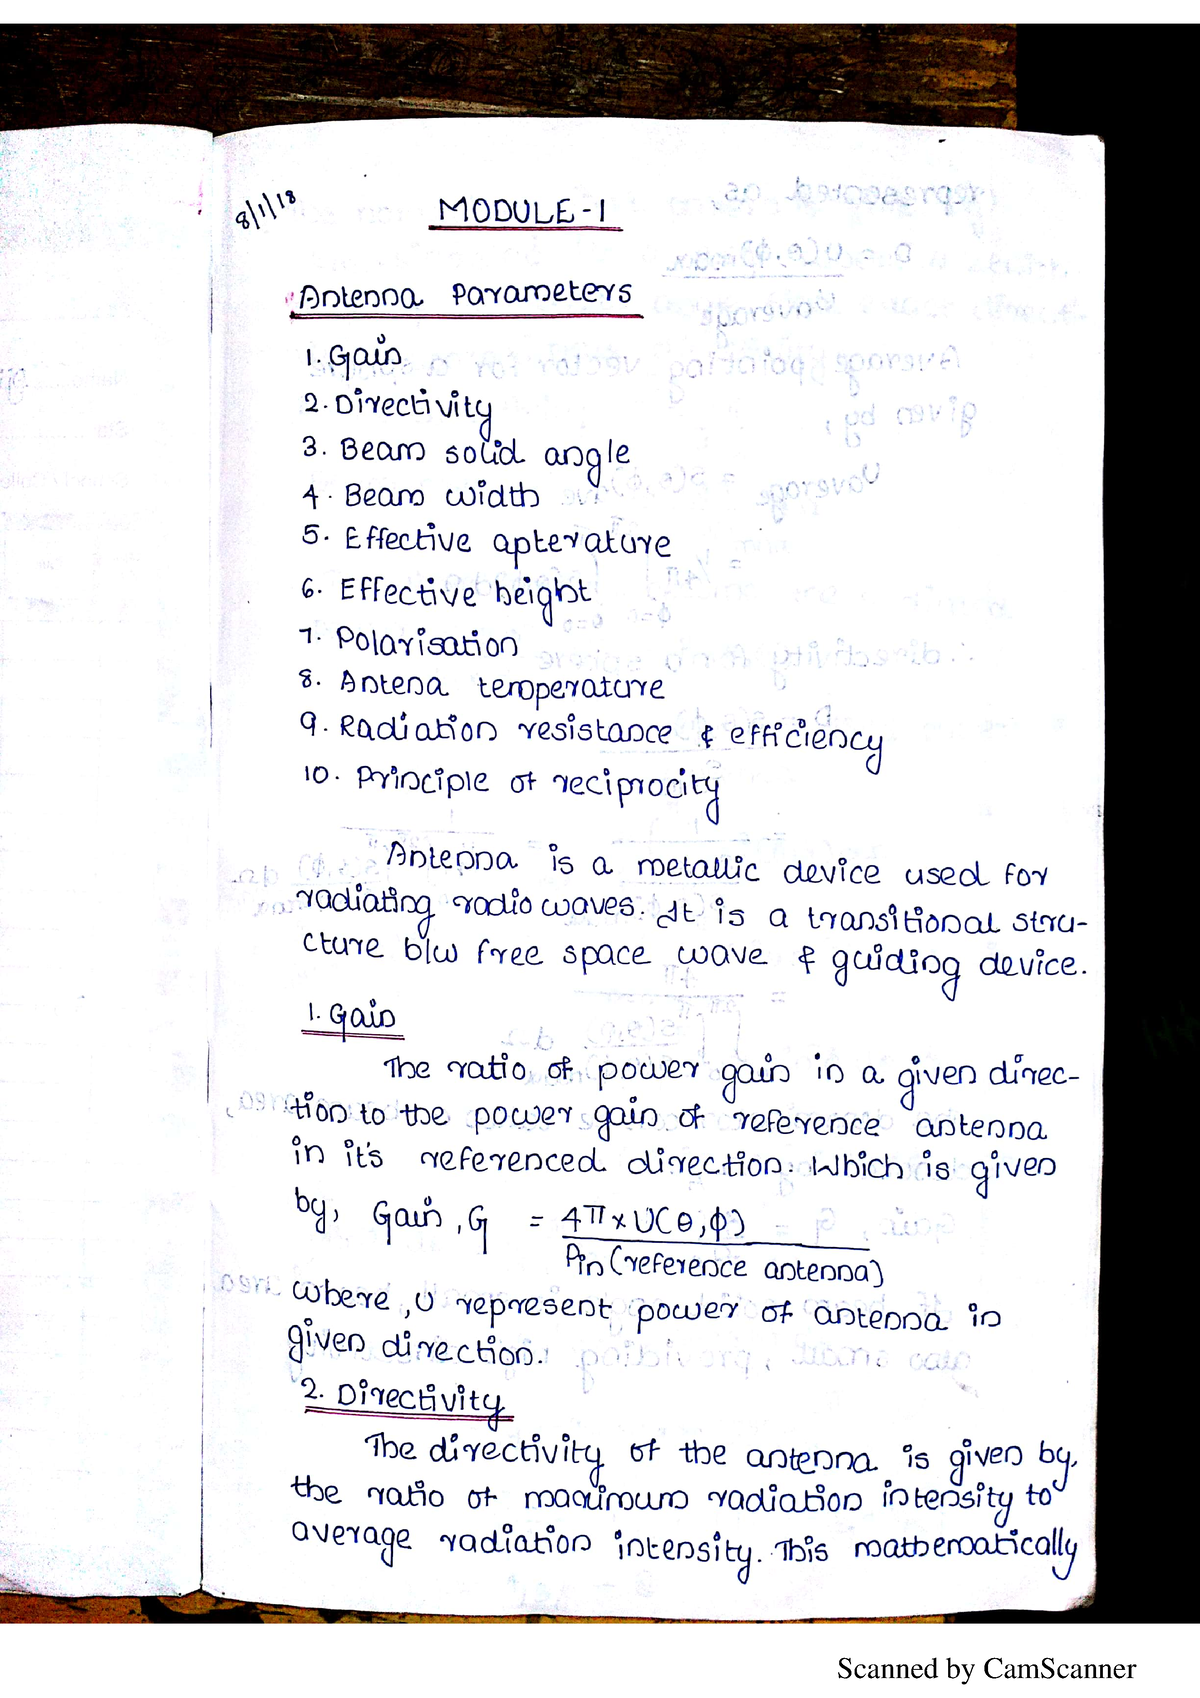 8/1/18
MODULE-1
Antenna Parameters
1. Gain
2. Directivity
3. Beam solid angle
4. Beam width
5. Effective apterature
6. Effective height
7. Polarisation
8. Antena temperature
9. Radiation resistance & efficiency
10. Principle of reciprocity
Antenna is a metallic device used for
radiating radio waves. It is a transitional stru-
cture b/w free space wave & guiding device.
1. Gain
The ratio of power gain in a given direc-
tion to the power gain of reference antenna
in it's referenced direction. Which is given
by, Gain, G = 4π×U(θ,φ)
Pin (reference antenna)
where, U represent power of antenna in
given direction.
2. Directivity
The directivity of the antenna is given by,
the ratio of maximum radiation intensity to
average radiation intensity. This mathematically
Scanned by CamScanner